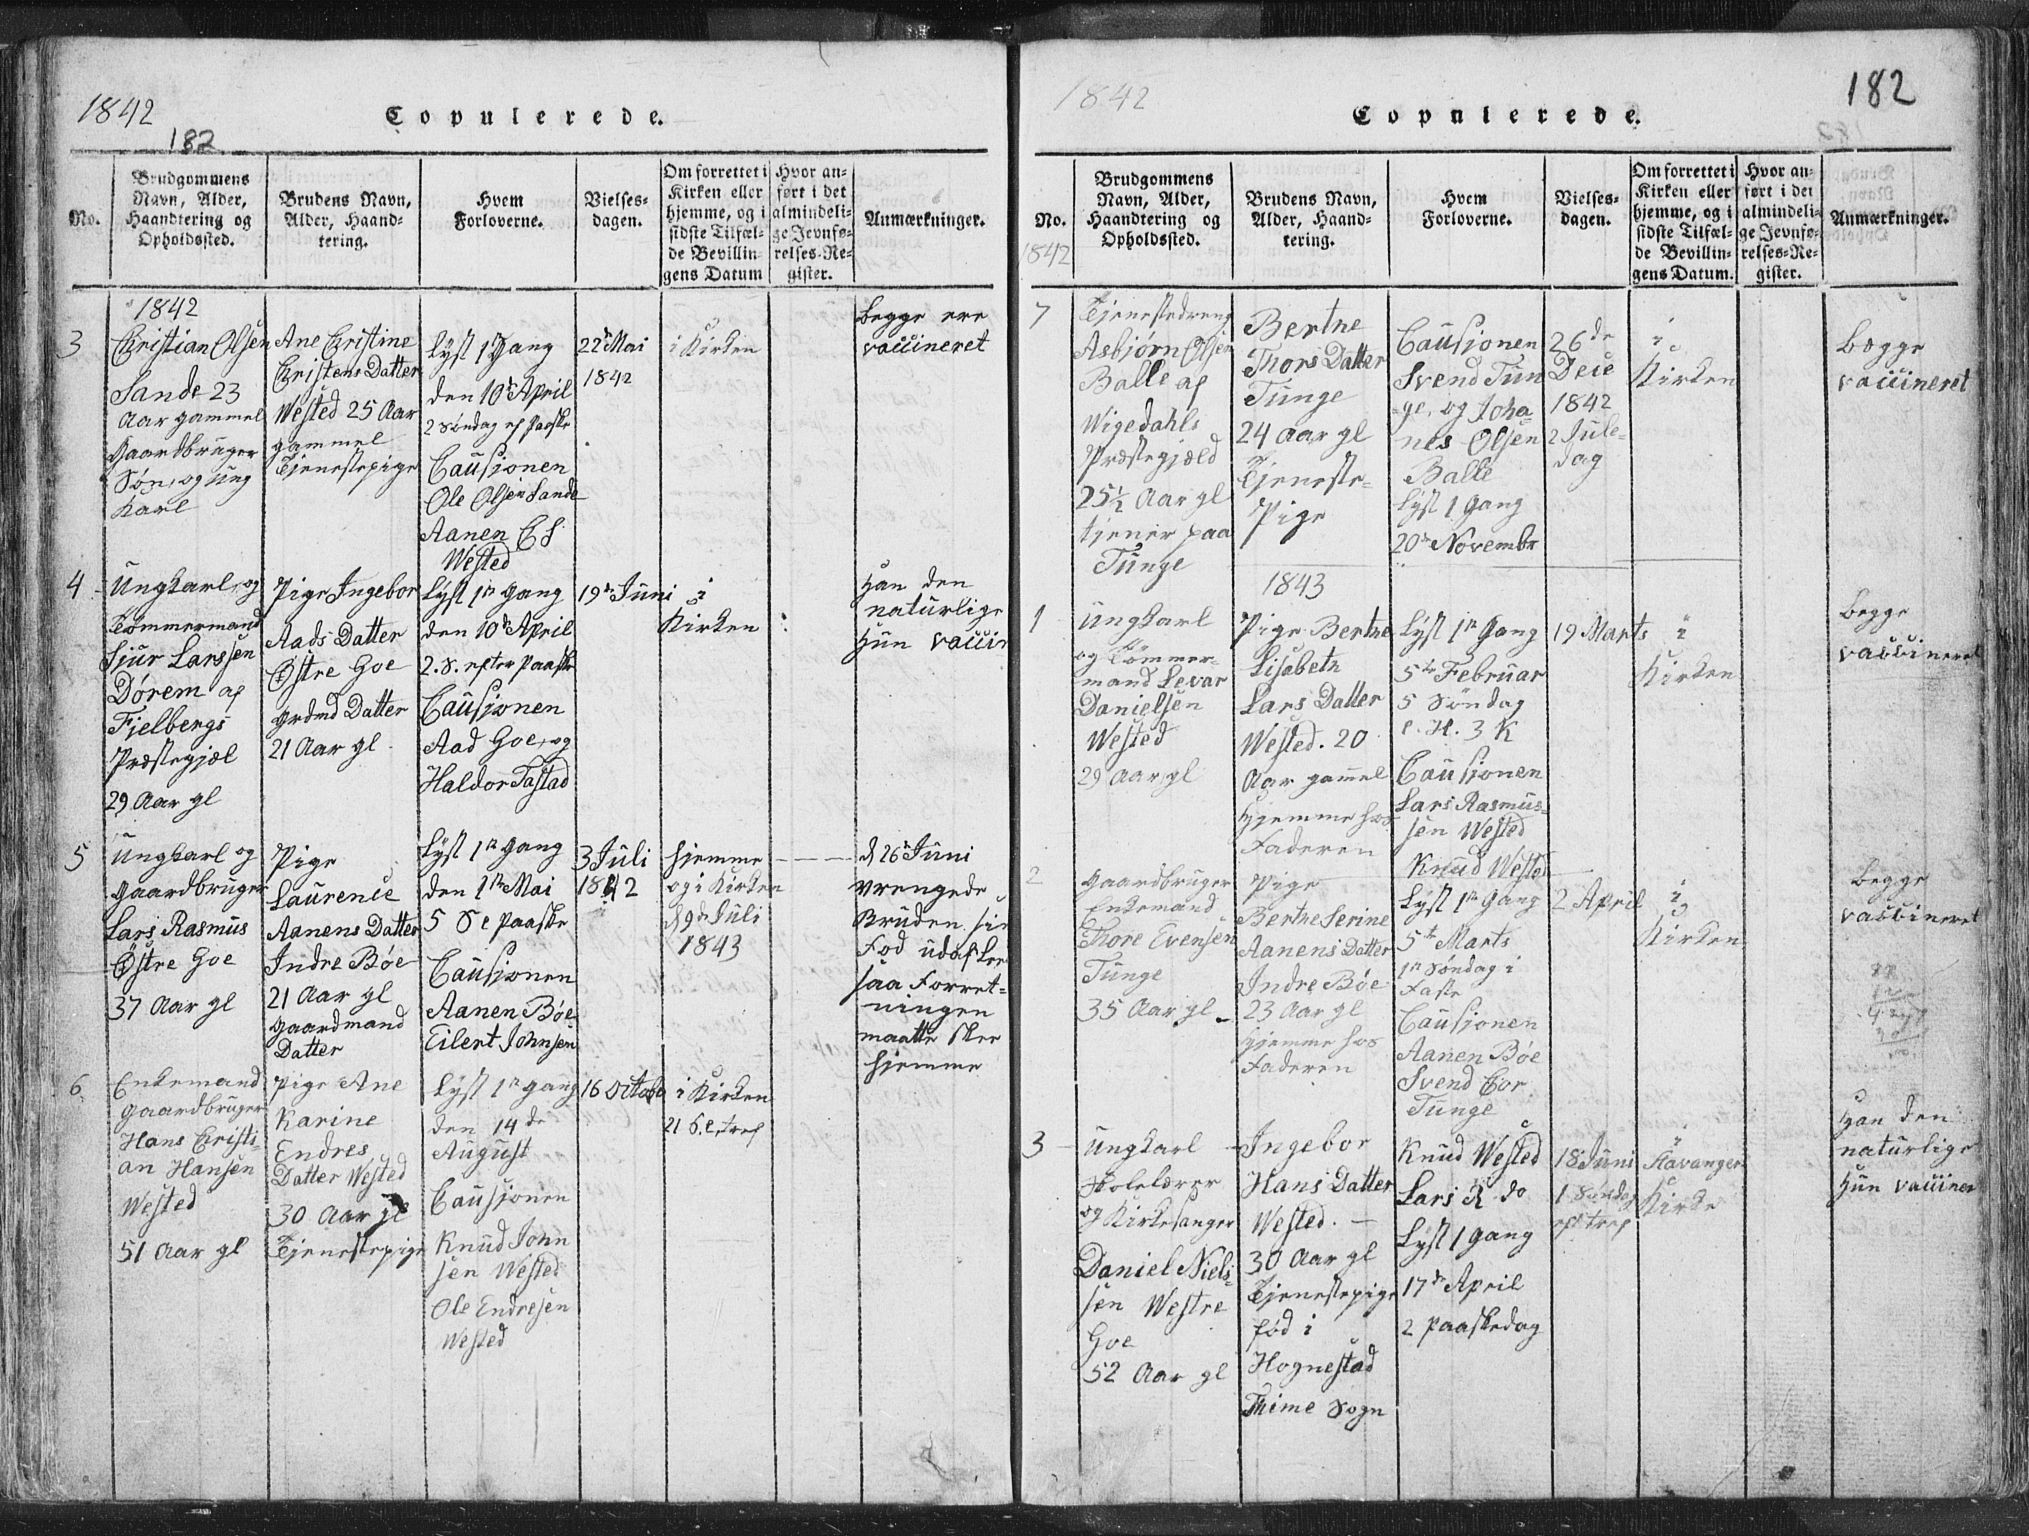 1842
Copulerede.
182
No.
Brudgommens
Navn, Alder,
Haandtering og
Opholdssted.
Brudens Navn,
Alder, Haand-
tering.
Hvem
Forloverne.
Vielses-
dagen.
Om forrettet i
Kirken eller
hjemme, og i
sidste Tilfæl-
de Bevillin-
gens Datum
Hvor an-
ført i det
almindeli-
ge Jevnfø-
relses-Re-
gister.
Anmærkninger.
1842
3
Christian Olsen
Sande 23
Aar gammel
Gaardbruger
Søn, og ung
Karl
Ane Christine
Christens Datter
Wested 25 Aar
gammel
Tjenestepige
Lyst 1te Gang
den 10de April
2 Søndag ef Paaske
Causionen
Ole Olsen Sande
Aanen Ch
Wested
22de Mai
1842
i Kirken
Begge ere
vaccineret
4
Ungkarl, og
Tømmermand
Sjur Larssen
Dørem af
Fjelbergs
Præstegjæl
29 Aar gl
Pige Ingebor
Aads Datter
Østre Goe
grdmd Datter
21 Aar gl
Lyst 1te Gang
den 10de April
2. S. efter Paaske
Causionen
Aad Goe, og
Haldor Tastad
19de Juni
i
Kirken
Han den
naturlige
Hun vaccin
5
Ungkarl og
Gaardbruger
Lars Rasmus
Østre Goe
37 Aar gl
Pige
Laurence
Aanens Datter
Indre Bøe
21 Aar gl
Gaardmand
Datter
Lyst 1te Gang
den 1te Mai
5 S e Paaske
Causionen
Aanen Bøe
Eilert Johnsen
3 Juli
1842
hjemme
og i Kirken
d 9de Juli
1843
d 26 Juni
vrengede
Bruden sin
Fod udaf Lee
saa Forret-
ningen
maatte skee
hjemme
6
Enkemand
Gaardbruger
Hans Christi-
an Hansen
Wested
51 Aar gl
Pige Ane
Karine
Endres
Datter Wested
30 Aar gl
Tjenestepige
Lyst 1te Gang
den 14de
August
Causionen
Knud John
sen Wested
Ole Endresen
Wested
16 Octobr
i Kirken
21 S. e. tref
1842
Copulerede.
182
No.
1842
Brudgommens
Navn, Alder,
Haandtering og
Opholdssted.
Brudens Navn,
Alder, Haand-
tering.
Hvem
Forloverne.
Vielses-
dagen.
Om forrettet i
Kirken eller
hjemme, og i
sidste Tilfæl-
de Bevillin-
gens Datum.
Hvor an-
ført i det
almindeli-
ge Jevnfø-
relses-Re-
gister.
Anmærkninger.
7
Tjenestedreng
Asbjørn Olsen
Balle af
Wigedahls
Præstegjæld
25½ Aar gl
tjener paa
Tunge
Berthe
Thors Datter
Tunge
24 Aar gl
Tjeneste-
Pige
Causionen
Svend Tun
ge, og Joha-
nes Olsen
Balle
Lyst 1 Gang
20de Novembr
26de
Dece
1842
2 Jule-
dag
i
Kirken
Begge
vaccineret
1843
1
Ungkarl
og Tømmer-
mand Levar
Danielsen
Wested
29 Aar gl
Pige Berthe
Lisebeth
Lars Datter
Wested. 20
Aar gammel
Hjemme hos
Faderen
Lyst 1te Gang
5te Februar
5 Søndag
e. H. 3 K
Causionen
Lars Rasmus-
sen Wested
Knud Wested
19 Marts
i
Kirken
Begge
vaccineret
2
Gaardbruger
Enkemand
Thore Evensen
Tunge
35 Aar gl
Pige
Berthe Serine
Aanens Datter
Indre Bøe
23 Aar gl
Hjemme hos
Faderen
Lyst 1te Gang
5te Marts
1te Søndag i
Faste
Causionen
Aanen Bøe
Svend Tor
Tunge
2 April
i
Kirken
Begge
vaccineret
3
Ungkarl
Skolelærer
og Kirkesanger
Daniel Niels-
sen Westre
Goe
52 Aar gl
Ingebor
Hans Datter
Wested.
30 Aar gl
Tjenestepige
født i
Hognestad
Thime Sogn
Knud Wested
Lars R do
Lyst 1 Gang
17de April
2 Paaskedag
18 Juni
1 Søndag
ef tref
i
Stavanger
Kirke
Han den
naturlige
Hun vaccine